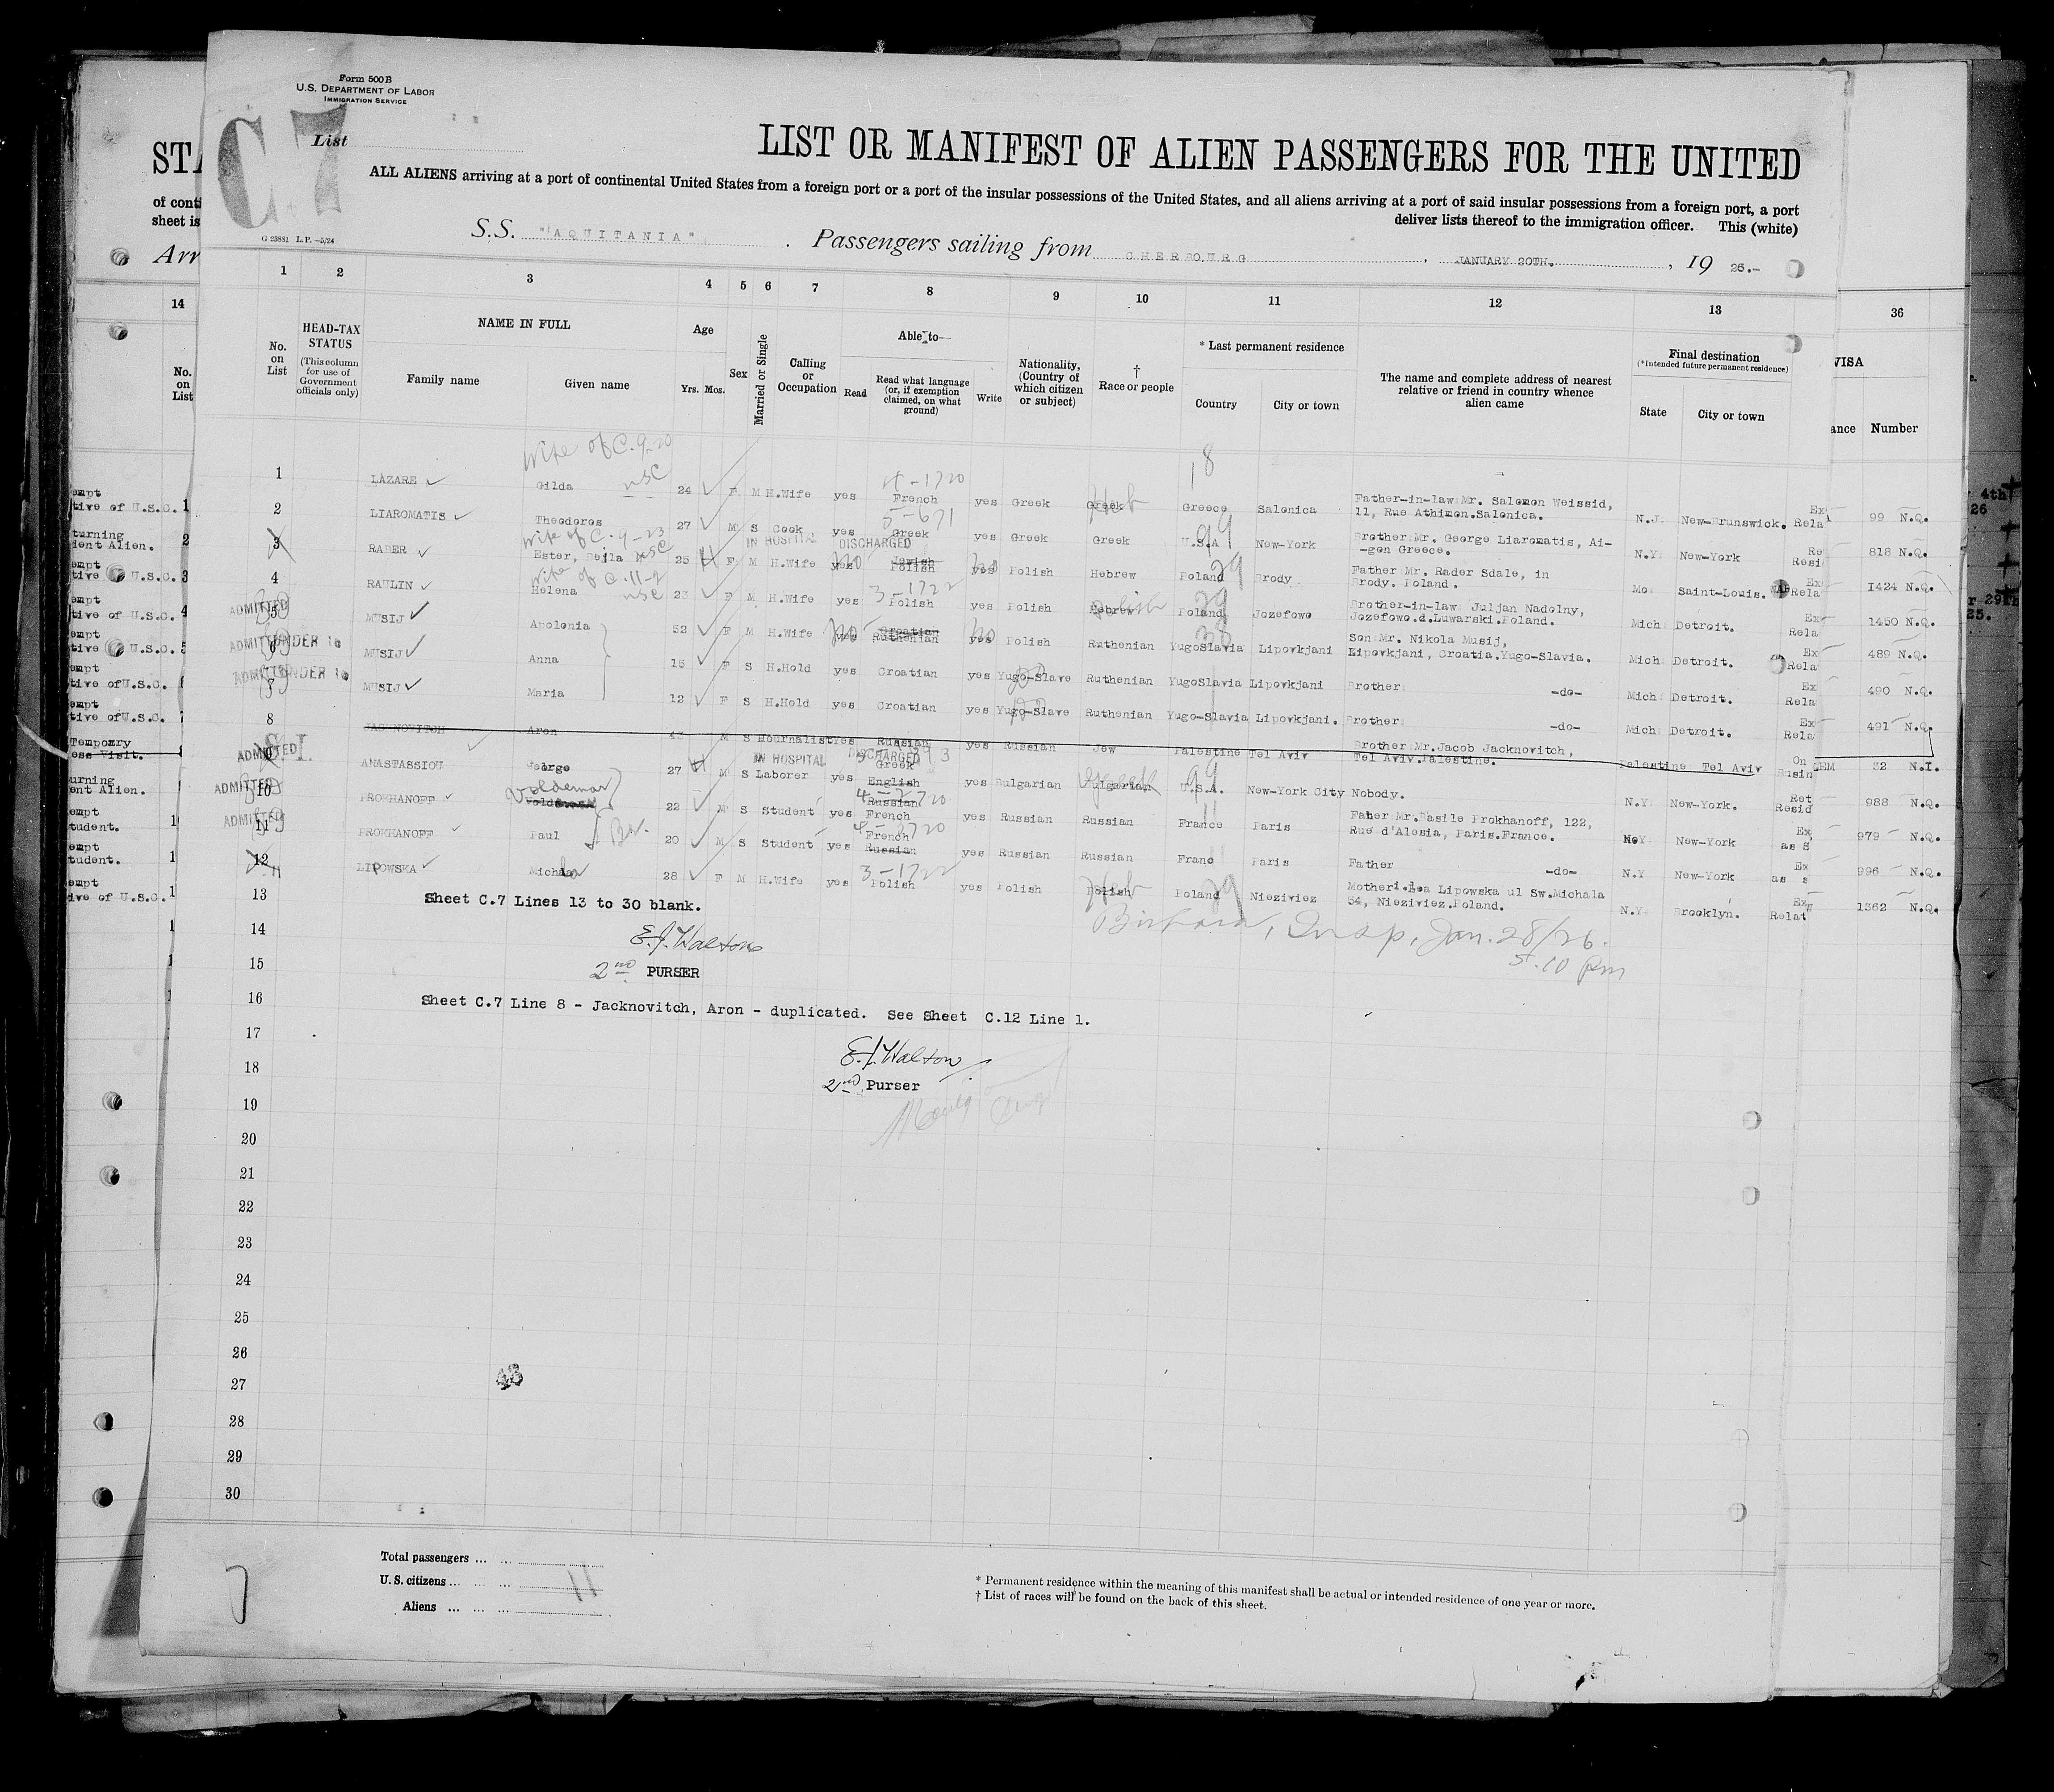 Form 500B
U.S. DEPARTMENT OF LABOR
IMMIGRATION SERVICE
C.7
List
LIST OR MANIFEST OF ALIEN PASSENGERS FOR THE UNITED
ALL ALIENS arriving at a port of continental United States from a foreign port or a port of the insular possessions of the United States, and all aliens arriving at a port of said insular possessions from a foreign port, a port
deliver lists thereof to the immigration officer. This (white)
G 23881 L.P. —5/24
S.S. "AQUITANIA" . Passengers sailing from CHERBOURG , JANUARY 20TH. , 19 26.-
1 2 3 4 5 6 7 8 9 10 11 12 13
No. on List
HEAD-TAX STATUS
(This column for use of Government officials only)
NAME IN FULL
Family name
Given name
Age
Yrs. Mos.
Sex
Married or Single
Calling or Occupation
Able to—
Read
Read what language (or, if exemption claimed, on what ground)
Write
Nationality, (Country of which citizen or subject)
† Race or people
* Last permanent residence
Country
City or town
The name and complete address of nearest relative or friend in country whence alien came
Final destination
(*Intended future permanent residence)
State
City or town
STA
of conti
sheet is
Arr
14
No. on List
36
VISA
ance Number
Wife of C. 9-20
1 LAZARE Gilda 24 F M H.Wife yes French yes Greek Greek Greece Salonica Father-in-law Mr. Salomon Weissid, 11, Rue Athimon.Salonica. N.J. New-Brunswick. Ex Rela 99 N.Q.
2 LIAROMATIS Theodoros 27 M S Cook yes Greek yes Greek Greek U.S.A New-York Brother Mr. George Liaromatis, Ai--gon Greece. N.Y. New-York Re Resi 818 N.Q.
Wife of C. 9-23
IN HOSPITAL DISCHARGED
3 RABER Ester, Bejla 25 F M H.Wife yes Jewish Polish yes Polish Hebrew Poland Brody Father Mr. Rader Sdale, in Brody. Poland. Mo. Saint-Louis. Ex Rela 1424 N.Q.
Wife of C. 11-2
4 RAULIN Helena 23 F M H.Wife yes Polish yes Polish Hebrew Poland Jozefowo Brother-in-law Juljan Nadolny, Jozefowo.d.Luwarski.Poland. Mich Detroit. Ex Rela 1450 N.Q.
ADMITTED
5 MUSIJ Apolonia 52 F M H.Wife yes Croatian Ruthenian yes Polish Ruthenian YugoSlavia Lipovkjani Son Mr. Nikola Musij, Lipovkjani, Croatia.Yugo-Slavia. Mich Detroit. Ex Rela 489 N.Q.
6 MUSIJ Anna 15 F S H.Hold yes Croatian yes Yugo-Slave Ruthenian YugoSlavia Lipovkjani Brother -do- Mich Detroit. Ex Rela 490 N.Q.
7 MUSIJ Maria 12 F S H.Hold yes Croatian yes Yugo-Slave Ruthenian Yugo-Slavia Lipovkjani. Brother -do- Mich Detroit. Ex Rela 491 N.Q.
8 JACKNOVITCH Aron 43 M S Journalist yes Russian yes Russian Jew Palestine Tel Aviv Brother Mr.Jacob Jacknovitch, Tel Aviv.Palestine. Palestine Tel Aviv On Busin 32 N.I.
ADMITTED IN HOSPITAL DISCHARGED
9 ANASTASSIOU George 27 M S Laborer yes Greek English yes Bulgarian Bulgarian U.S.A. New-York City Nobody. N.Y. New-York. Ret Resid 988 N.Q.
ADMITTED
10 PROKHANOFF Voldemar 22 M S Student yes Russian French yes Russian Russian France Paris Faher Mr.Basile Prokhanoff, 122, Rue d'Alesia, Paris.France. N.Y. New-York Ex, as S 979 N.Q.
ADMITTED
11 PROKHANOFF Paul 20 M S Student yes French Russian yes Russian Russian Franc Paris Father -do- N.Y New-York Ex as s 996 N.Q.
12 LIPOWSKA Michla 28 F M H.Wife yes Polish yes Polish Polish Poland Nieziviez Mother Lea Lipowska ul Sw.Michala 54, Nieziviez.Poland. N.Y. Brooklyn. Ex Relat 1362 N.Q.
13 Sheet C.7 Lines 13 to 30 blank.
Insp, Jan. 28/26.
5.10 pm
14 E.J. Walton
15 2nd PURSER
16 Sheet C.7 Line 8 - Jacknovitch, Aron - duplicated. See Sheet C.12 Line 1.
17
E.J. Walton
18 2nd Purser
19
20
21
22
23
24
25
26
27
28
29
30
Total passengers ... ...
U. S. citizens ... ... ... 11
Aliens ... ... ...
7
* Permanent residence within the meaning of this manifest shall be actual or intended residence of one year or more.
† List of races will be found on the back of this sheet.